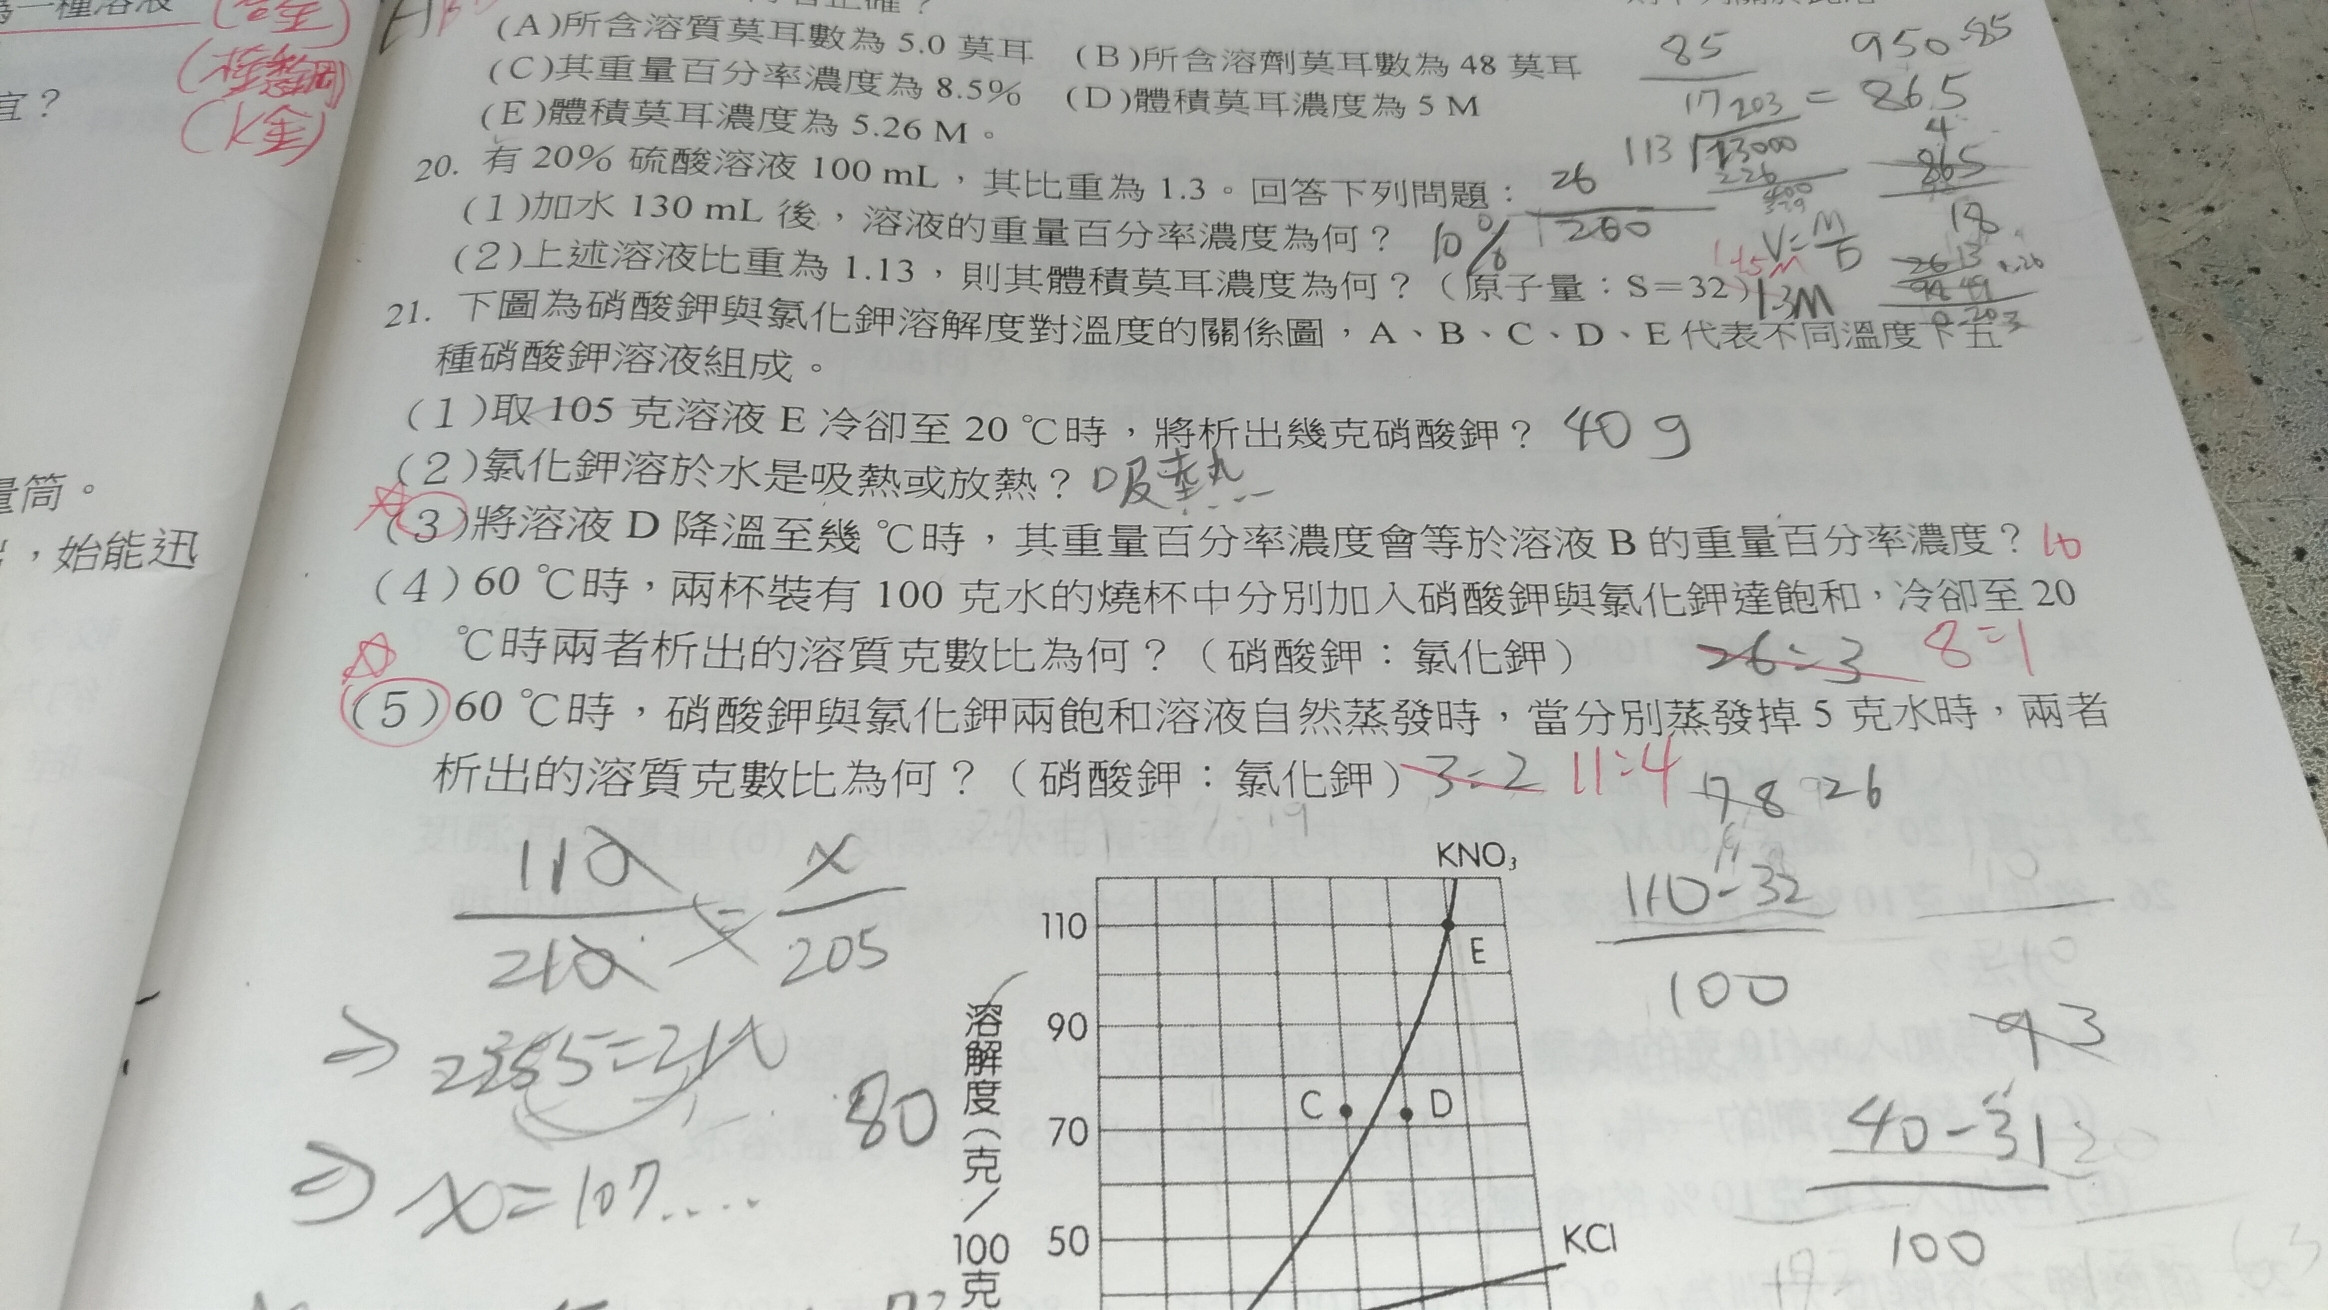 為一種溶液 (合金)
(K金)
宜？
量筒。
，始能迅
(A)所含溶質莫耳數為 5.0 莫耳 (B)所含溶劑莫耳數為 48 莫耳
(C)其重量百分率濃度為 8.5% (D)體積莫耳濃度為 5 M
(E)體積莫耳濃度為 5.26 M。
85
17
950-85
= 865
20. 有 20% 硫酸溶液 100 mL，其比重為 1.3。回答下列問題：
(1)加水 130 mL 後，溶液的重量百分率濃度為何？ 10%
26
260
(2)上述溶液比重為 1.13，則其體積莫耳濃度為何？（原子量：S=32）1.3M
V=M/D
21. 下圖為硝酸鉀與氯化鉀溶解度對溫度的關係圖，A、B、C、D、E 代表不同溫度下五
種硝酸鉀溶液組成。
(1)取 105 克溶液 E 冷卻至 20 ℃時，將析出幾克硝酸鉀？ 40 g
(2)氯化鉀溶於水是吸熱或放熱？ 吸熱
(3)將溶液 D 降溫至幾 ℃時，其重量百分率濃度會等於溶液 B 的重量百分率濃度？ 10
(4) 60 ℃時，兩杯裝有 100 克水的燒杯中分別加入硝酸鉀與氯化鉀達飽和，冷卻至 20
℃時兩者析出的溶質克數比為何？（硝酸鉀：氯化鉀） 26:3 8:1
(5) 60 ℃時，硝酸鉀與氯化鉀兩飽和溶液自然蒸發時，當分別蒸發掉 5 克水時，兩者
析出的溶質克數比為何？（硝酸鉀：氯化鉀） 3:2 11:4
78 26
110
210
=
x
205
⇒ x=107....
80
110-32
100
93
40-31
100
KNO₃
110
E
90
C
D
70
50
KCl
溶解度（克／100克